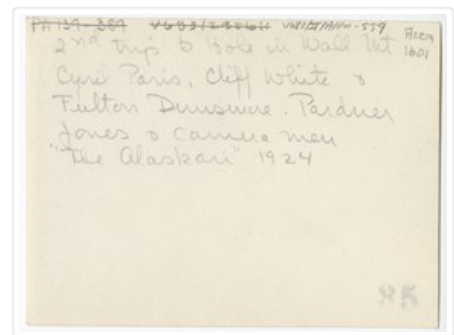 PA 139-389 V683/I/A/PA-559 Accn
2nd trip to Hole in Wall Mt 1601
Cyril Paris, Cliff White &
Fulton Dunsmore. Pardner
Jones & camera men
"The Alaskan" 1924
85